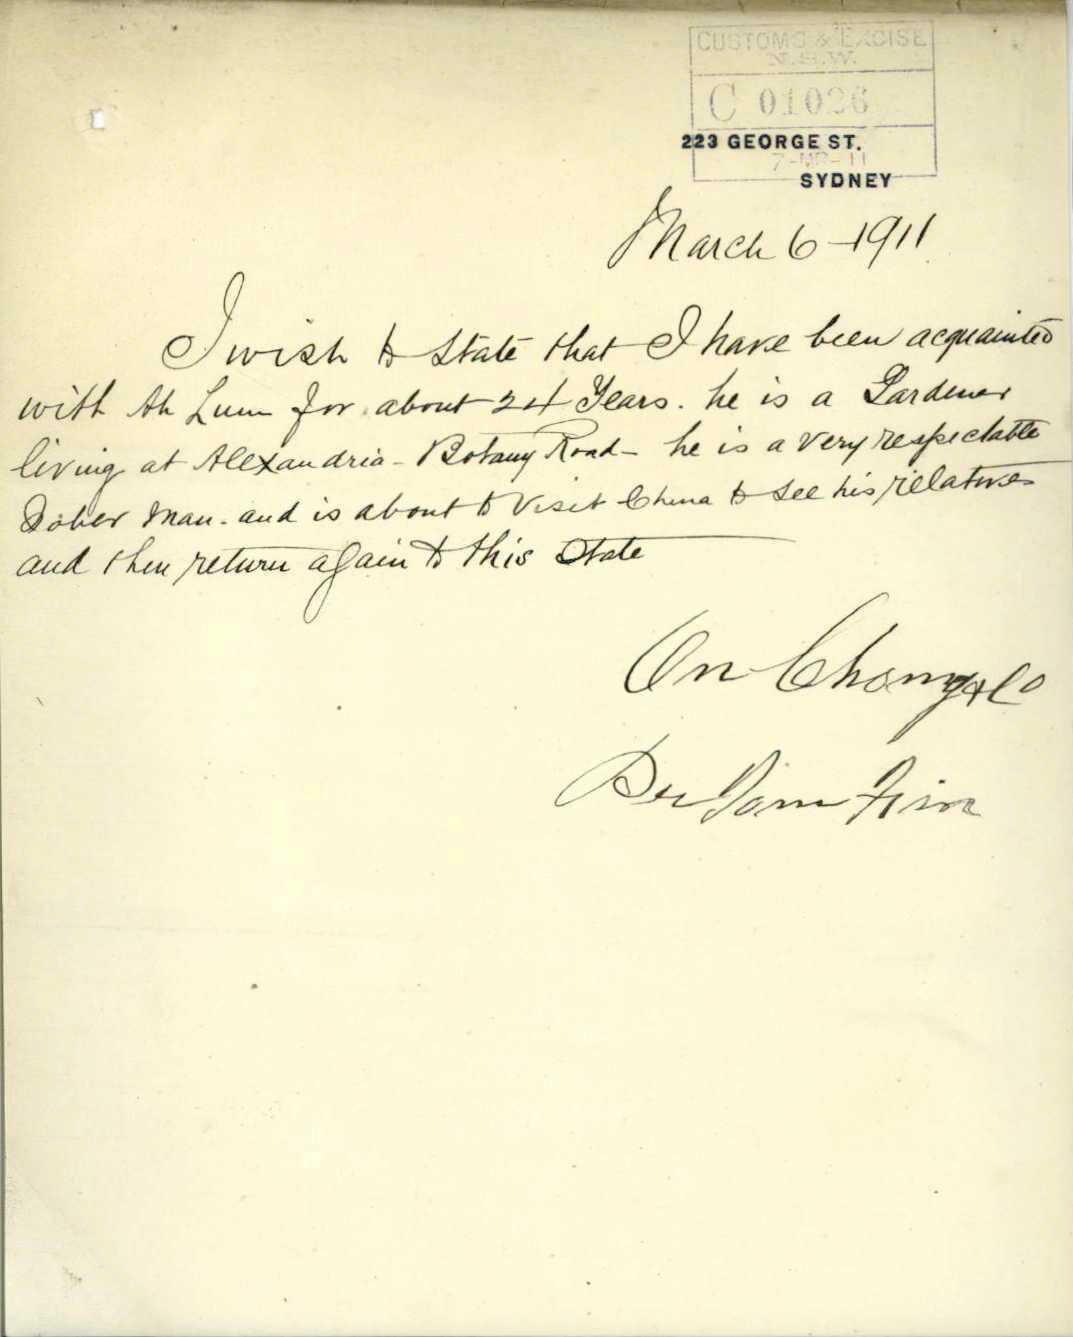 CUSTOMS & EXCISE
N.S.W.
C 01026
223 GEORGE ST.
7-MR-11
SYDNEY
March 6-1911
I wish to State that I have been acquainted
with Ah Lum for about 24 Years. he is a Gardener
living at Alexandria - Botany Road - he is a very respectable
Sober Man. and is about to Visit China to See his relatives
and then return again to this State
On Chong & Co
Per